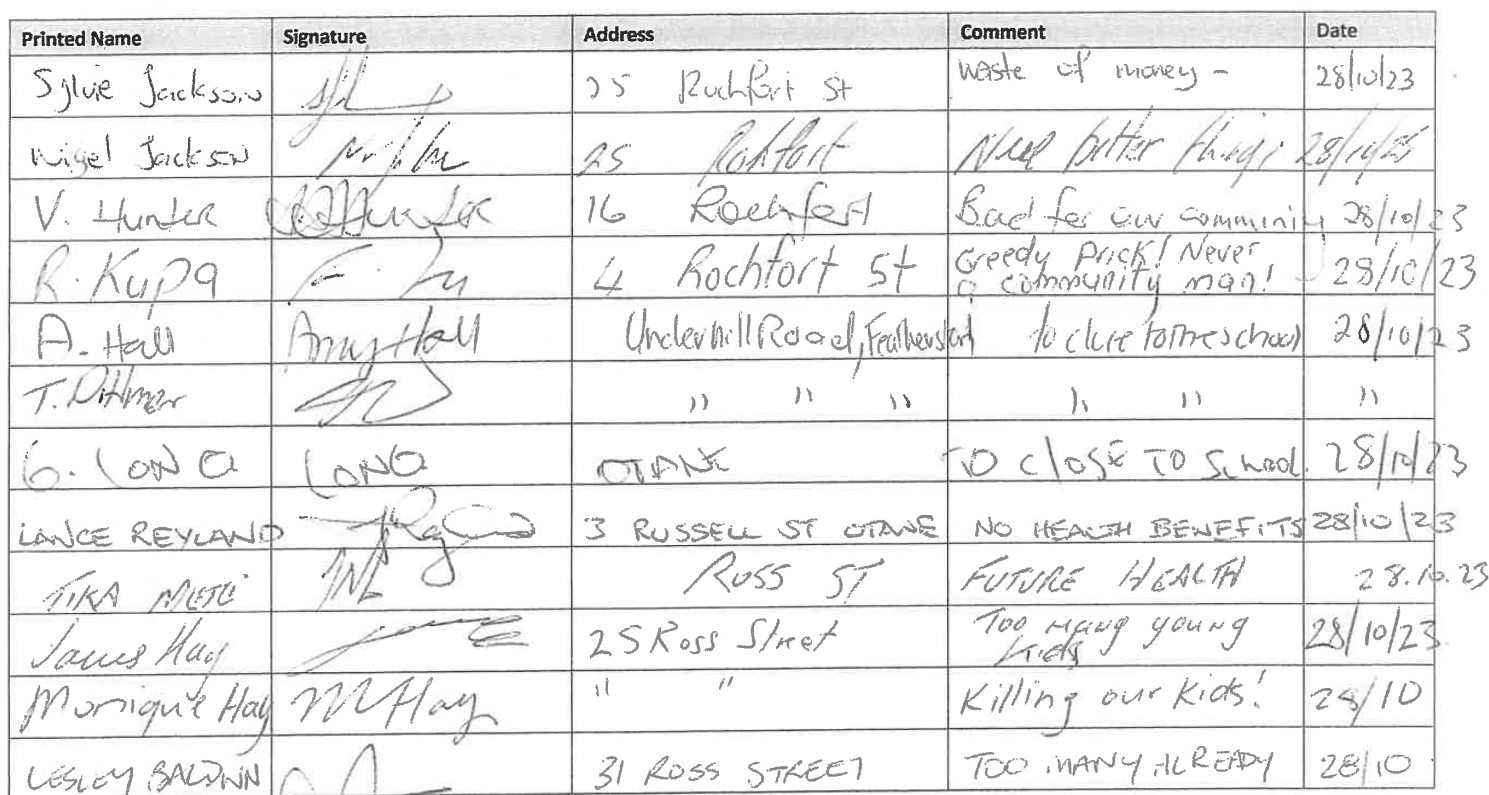 Printed Name Signature Address Comment Date
Sylvie Jackson 25 Rochfort St waste of money - 28/10/23
Nigel Jackson 25 Rohfort Need better things 28/10/23
V. Hunter Hunter 16 Rochfort Bad for our comminity 28/10/23
R. Kupa 4 Rochfort St Greedy Prick! Never
a community man! 28/10/23
A. Hall Amy Hall Underhill Road, Featherston to close to the school 28/10/23
T. Dittmer " " " " " "
G. LONG LONG OTANE TO CLOSE TO School. 28/10/23
LANCE REYLAND 3 RUSSELL ST OTANE NO HEALTH BENEFITS 28/10/23
TIKA METE ROSS ST FUTURE HEALTH 28.10.23
James Hay 25 Ross Street Too many young
kids 28/10/23
Monique Hay M Hay " " Killing our Kids! 28/10
LESLEY BALDWIN 31 ROSS STREET TOO MANY ALREADY 28/10